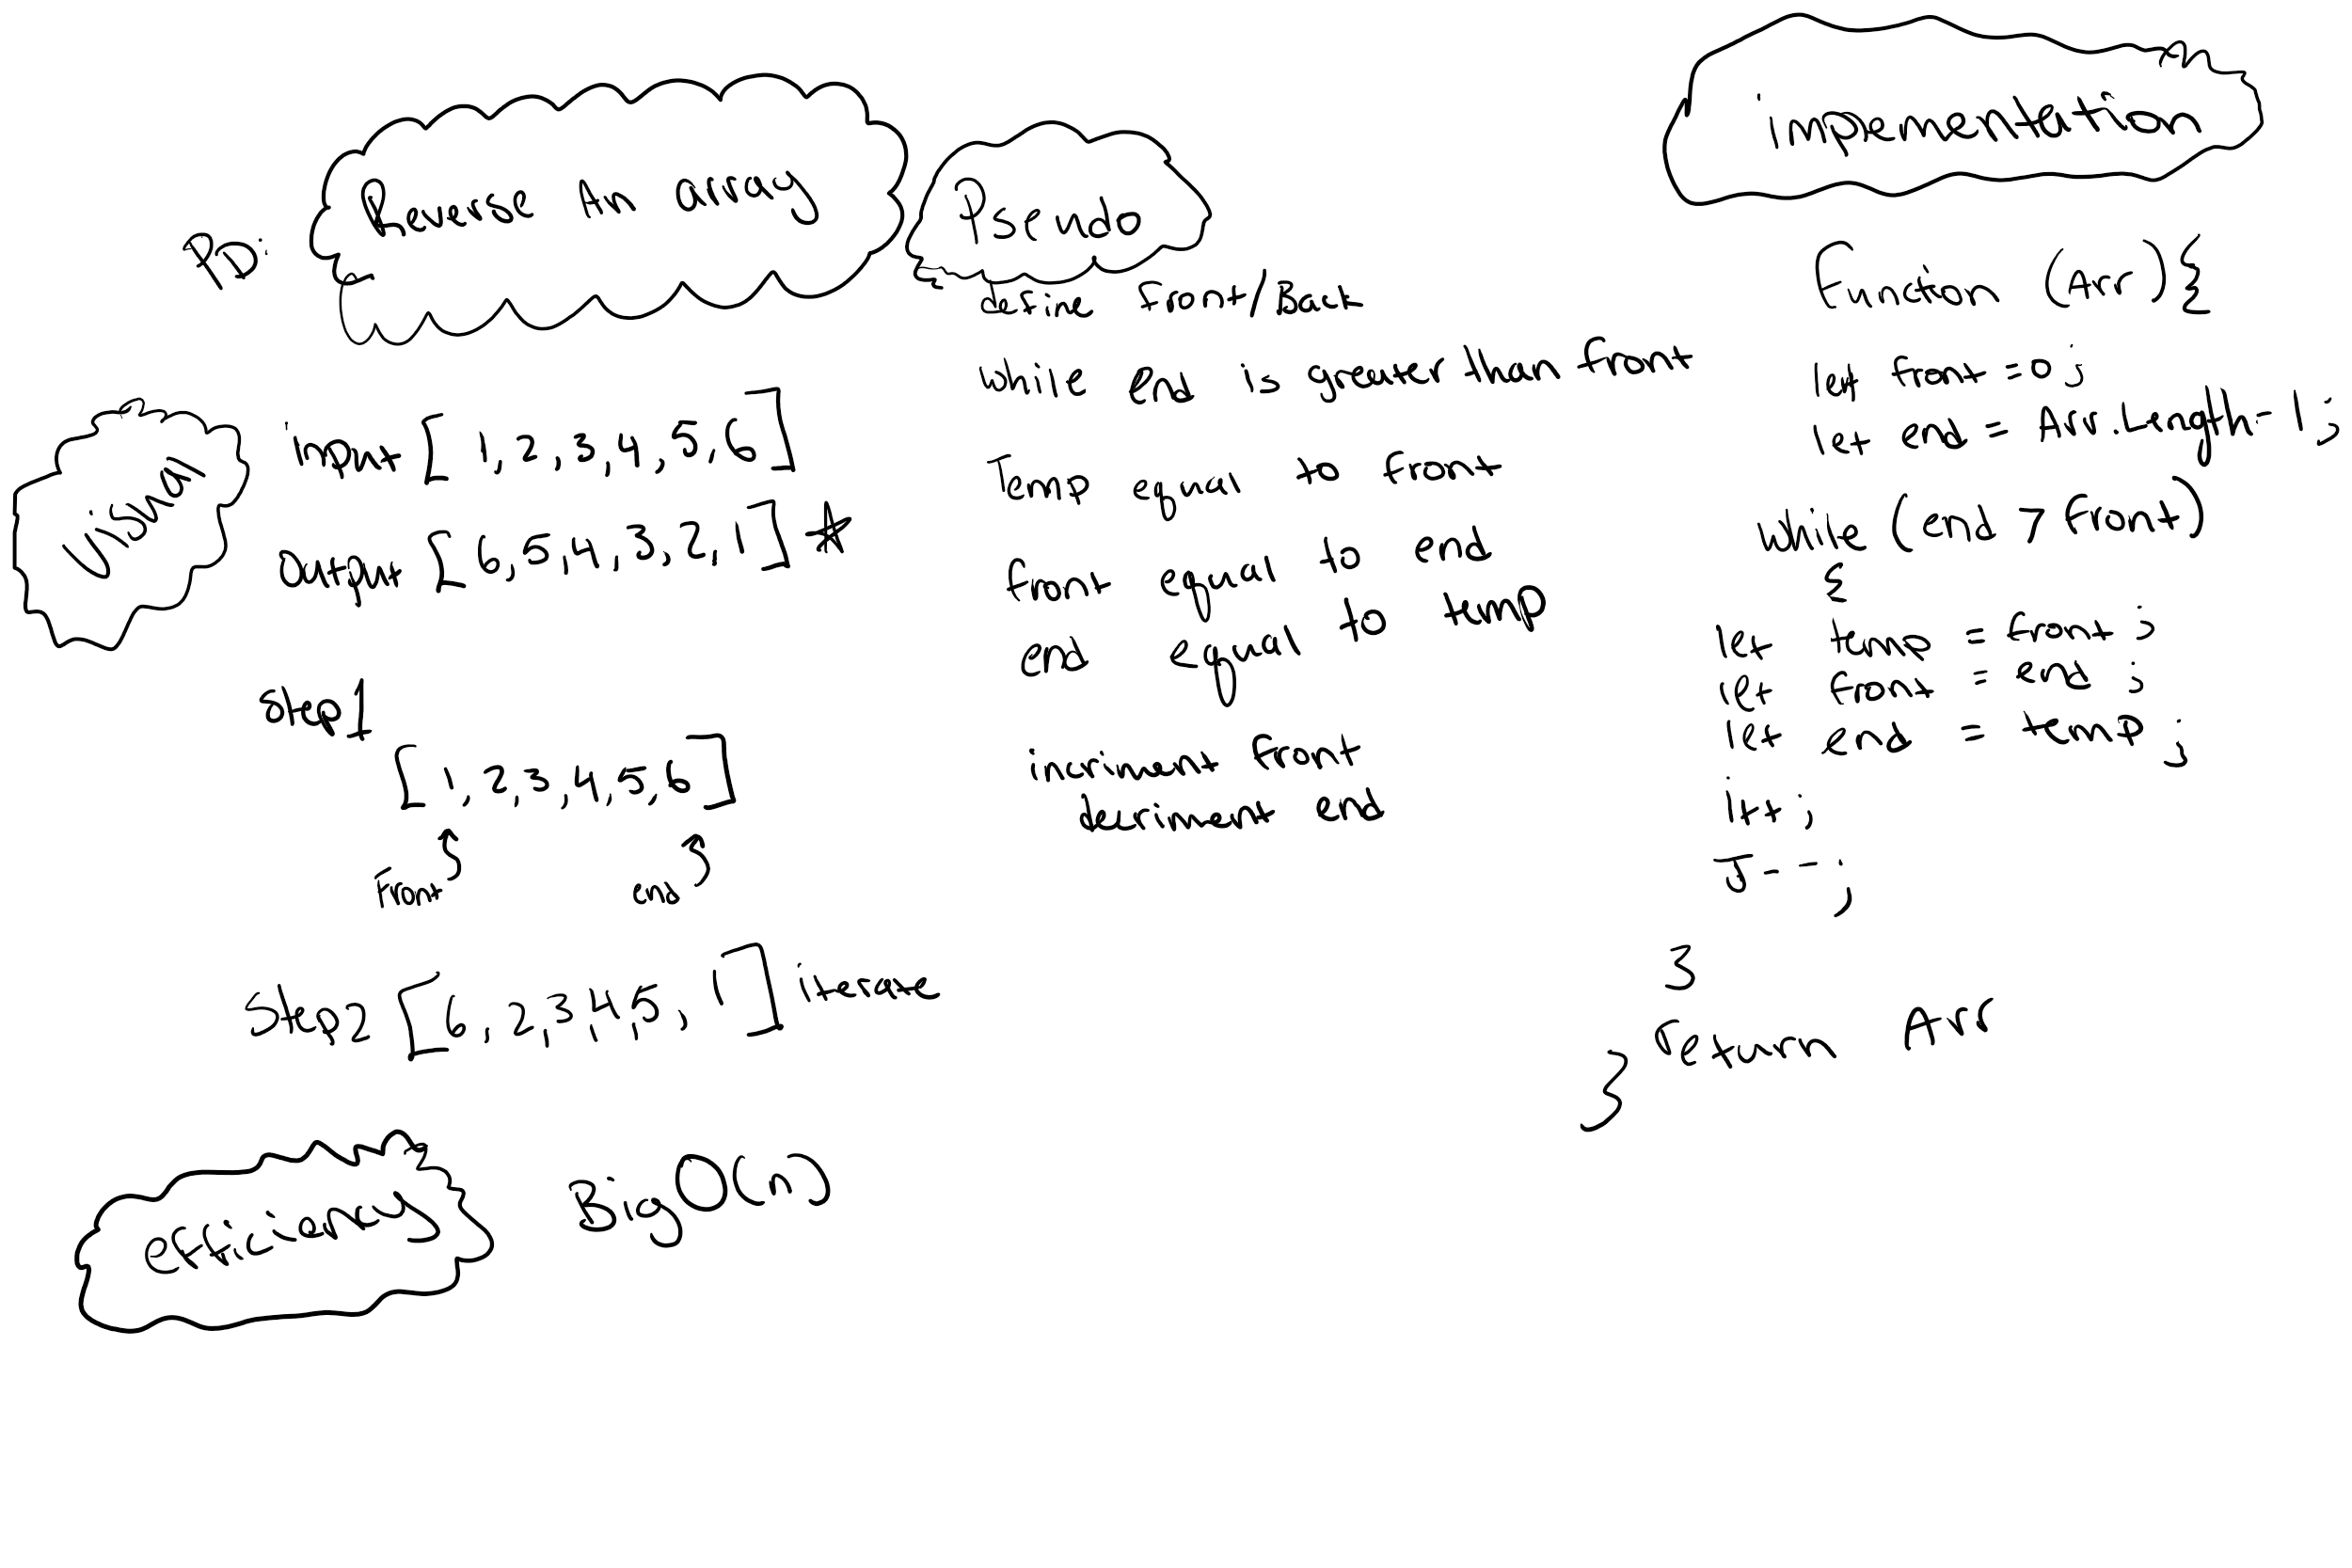 PD:
Reverse An array
Visual
input [1,2,3,4,5,6]
output [6,5,4,3,2,1] *
Step 1
[1,2,3,4,5,6]
front end
Step 2 [6,2,3,4,5,1] iterate
efficiency
Big O(n)
Pseudo
define front/Back
while end is greater than front
Temp equal to front
front equal to end
end equal to temp
incriment front
decriment end
impementation
Function (Arr){
let front = 0;
let end = Arr.Length-1;
while (end > front)
{
let temp = front;
let front = end;
let end = temp;
i++;
J--;
}
return Arr
}